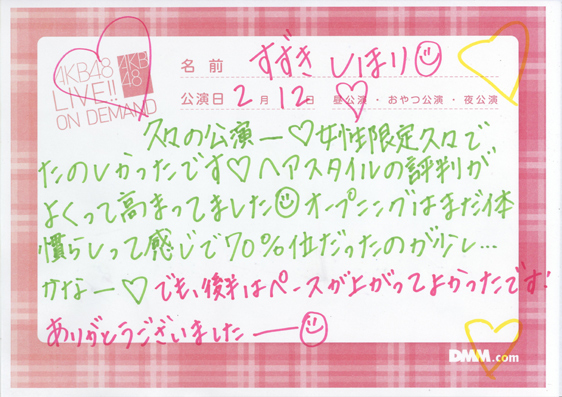 AKB48
LIVE!!
ON DEMAND
AKB
48
名前 すずきしほり
公演日 2月12日 昼公演・おやつ公演・夜公演
久々の公演ー♡女性限定久々で
たのしかったです♡ヘアスタイルの評判が
よくって高まってました オープニングはまだ体
慣らしって感じで70%位だったのが少し…
かなー♡でも、後半はペースが上がってよかったです!
ありがとうございましたー
DMM.com